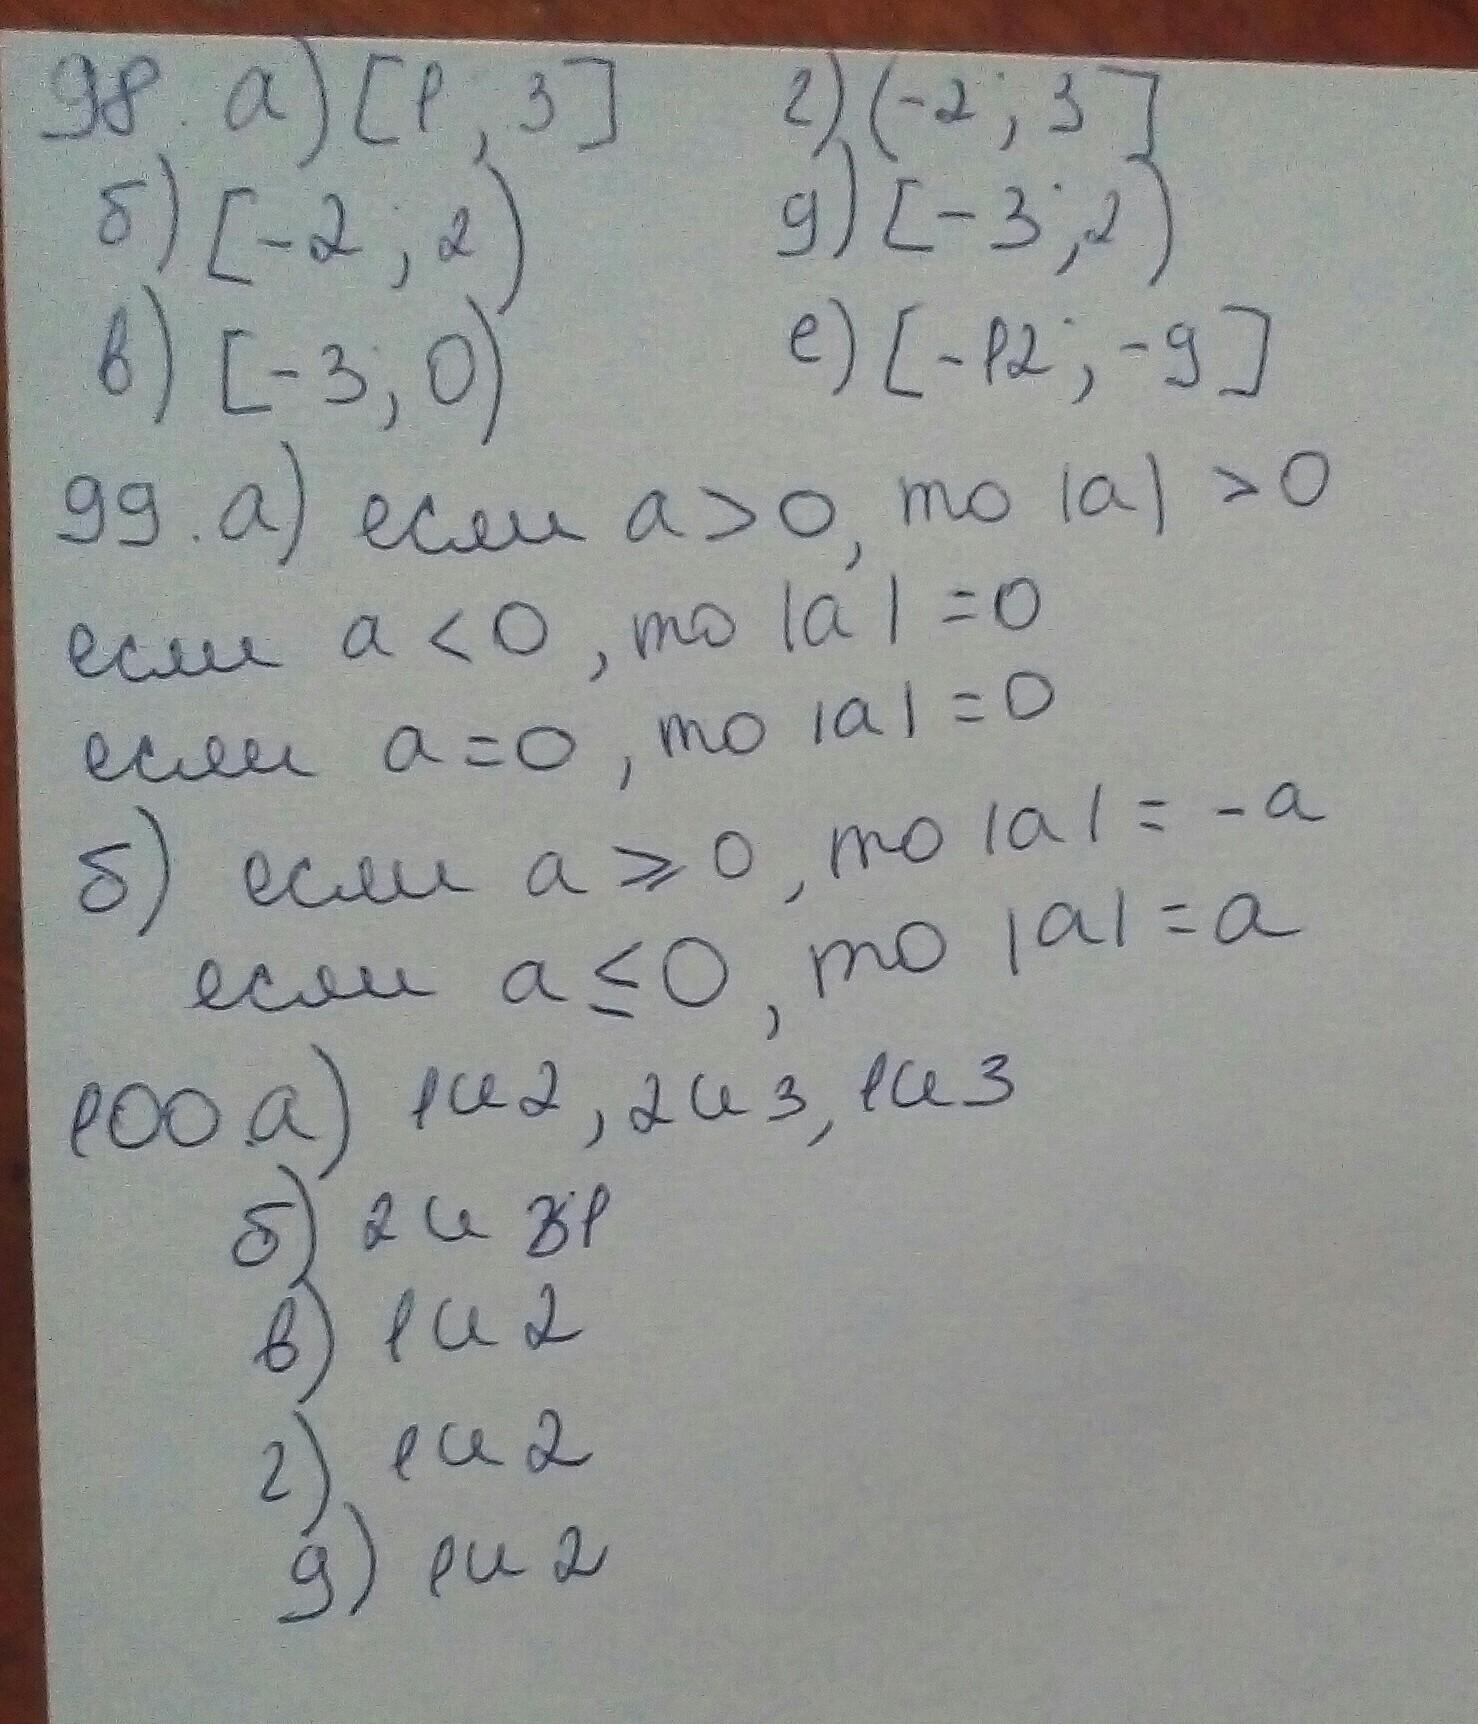 98. а) [1; 3] г) (-2; 3]
б) [-2; 2) д) [-3; 2)
в) [-3; 0) е) [-12; -9]
99. а) если a > 0, то |a| > 0
если a < 0, то |a| = 0
если a = 0, то |a| = 0
б) если a ⩾ 0, то |a| = -a
если a ≤ 0, то |a| = a
100. а) 1 и 2, 2 и 3, 1 и 3
б) 2 и 1
в) 1 и 2
г) 1 и 2
д) 1 и 2